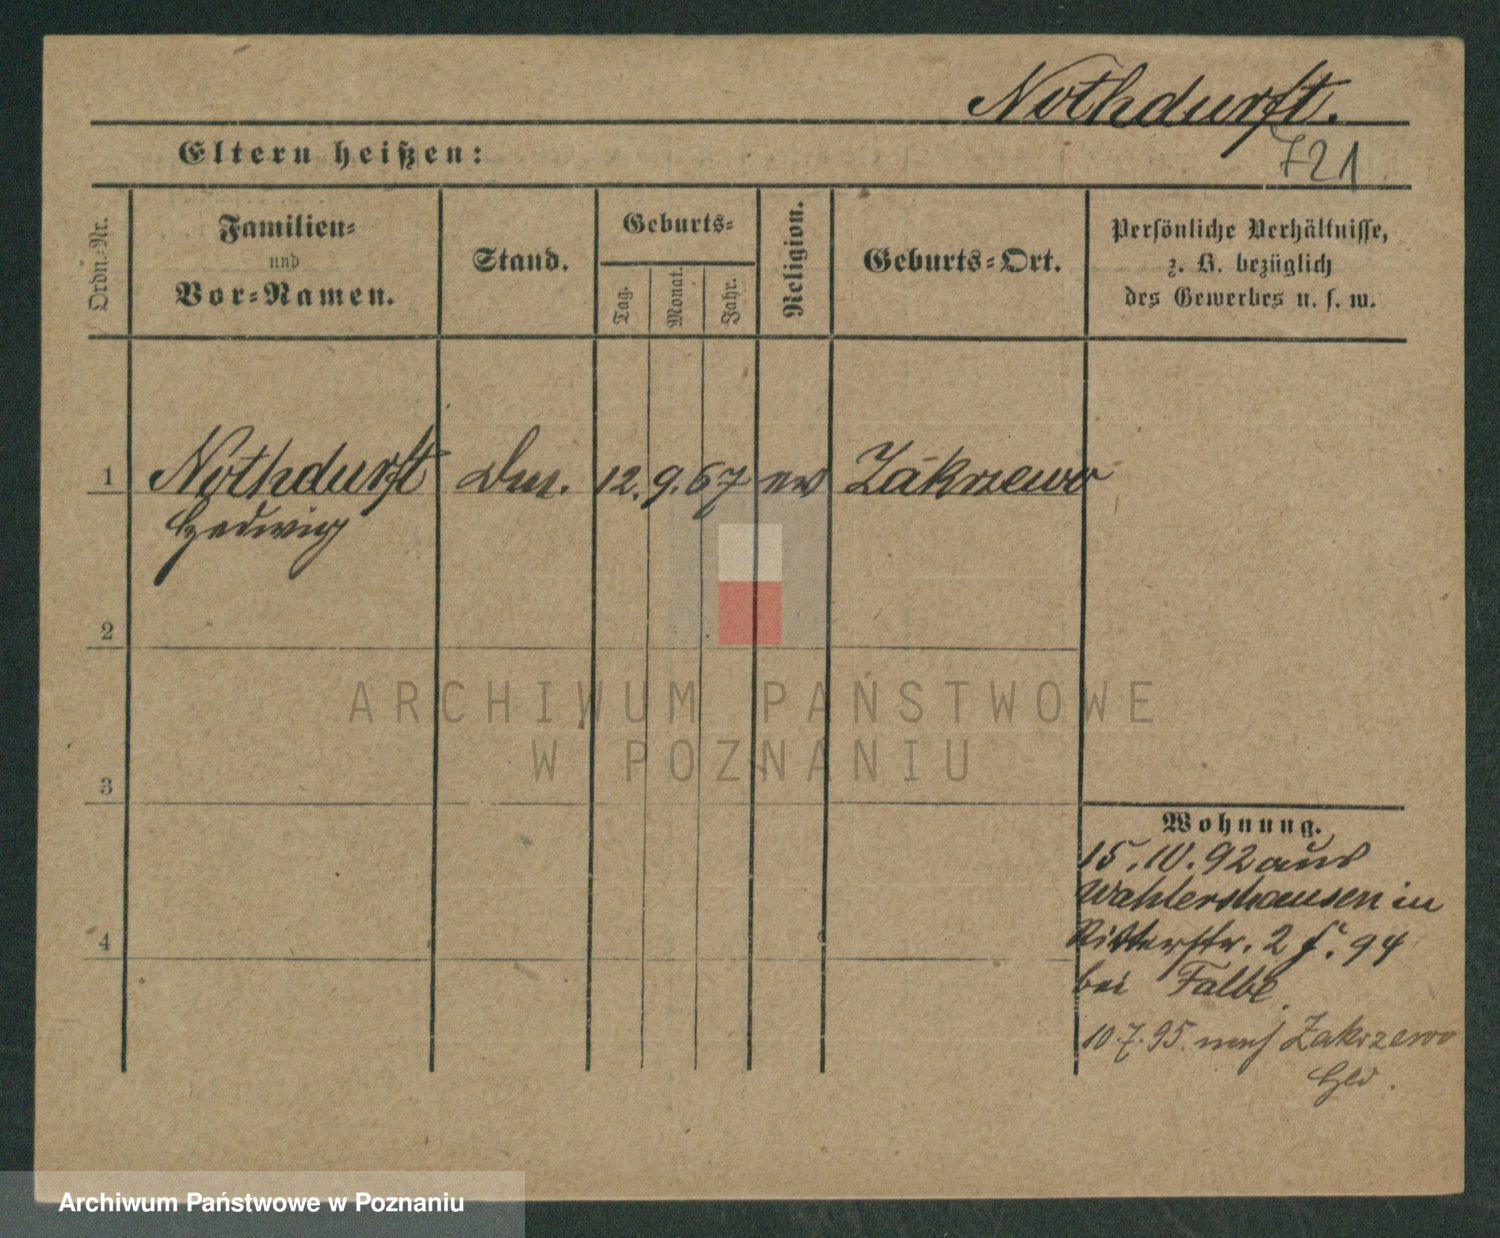 Nothdurft.
721
Eltern heißen:
Ordn.-Nr.
Familien-
und
Vor-Namen.
Stand.
Geburts-
Tag.
Monat.
Jahr.
Religion.
Geburts-Ort.
Persönliche Verhältnisse,
z. B. bezüglich
des Gewerbes u. s. w.
1
Nothdurft
12. 9. 67
Zakrzewo
Hedwig
2
ARCHIWUM PAŃSTWOWE
W POZNANIU
3
Wohnung.
15. 10. 92 aus
Wahlershausen in
4
Ritterstr. 2 94
bei Falbe
10.7.95. nach Zakrzewo
Archiwum Państwowe w Poznaniu